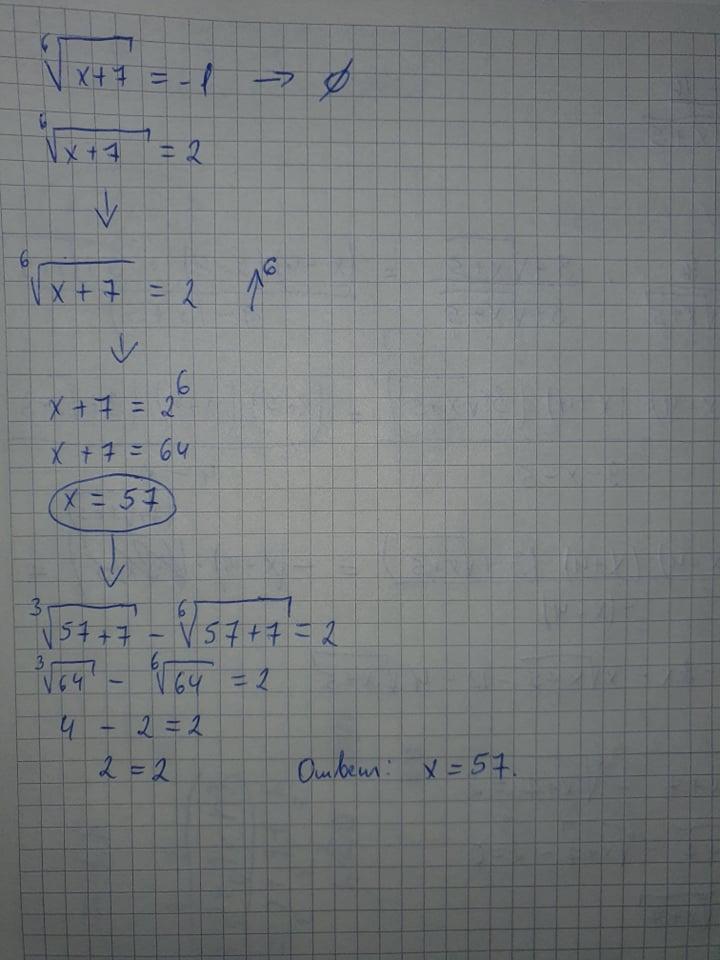 ⁶√(x+7) = -1 → ∅
⁶√(x+7) = 2
↓
⁶√(x+7) = 2 ↑⁶
↓
x+7 = 2⁶
x+7 = 64
x = 57
↓
³√(57+7) - ⁶√(57+7) = 2
³√64 - ⁶√64 = 2
4 - 2 = 2
2 = 2 Ответ: x = 57.